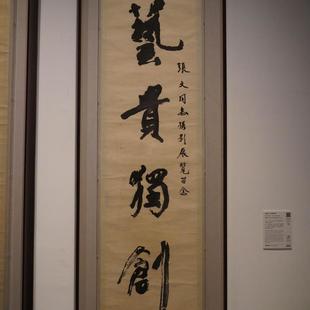 藝貴獨創
張文同志攝影展覽留念